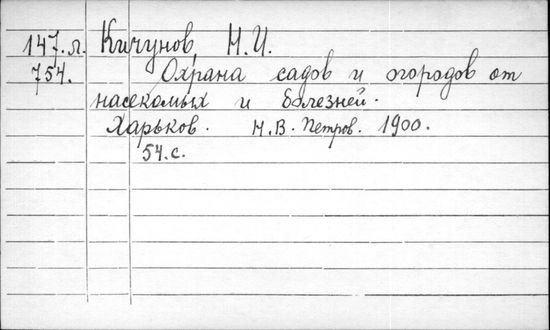 147.л. Кичунов, Н.И.
754. Охрана садов и огородов от
насекомых и болезней.
Харьков. Н.В. Петров. 1900.
54.с.